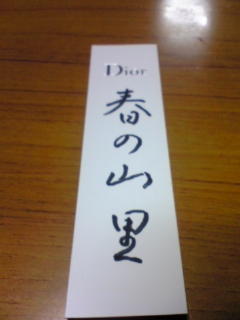 Dior
春の山里